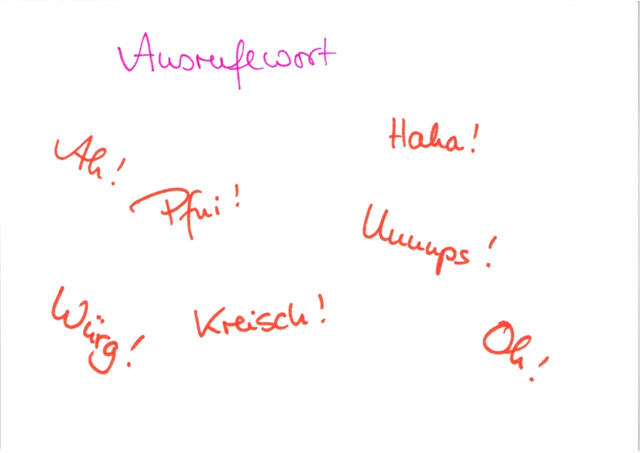 Ausrufewort
Haha!
Ah!
Pfui!
Uuuups!
Würg!
Kreisch!
Oh!